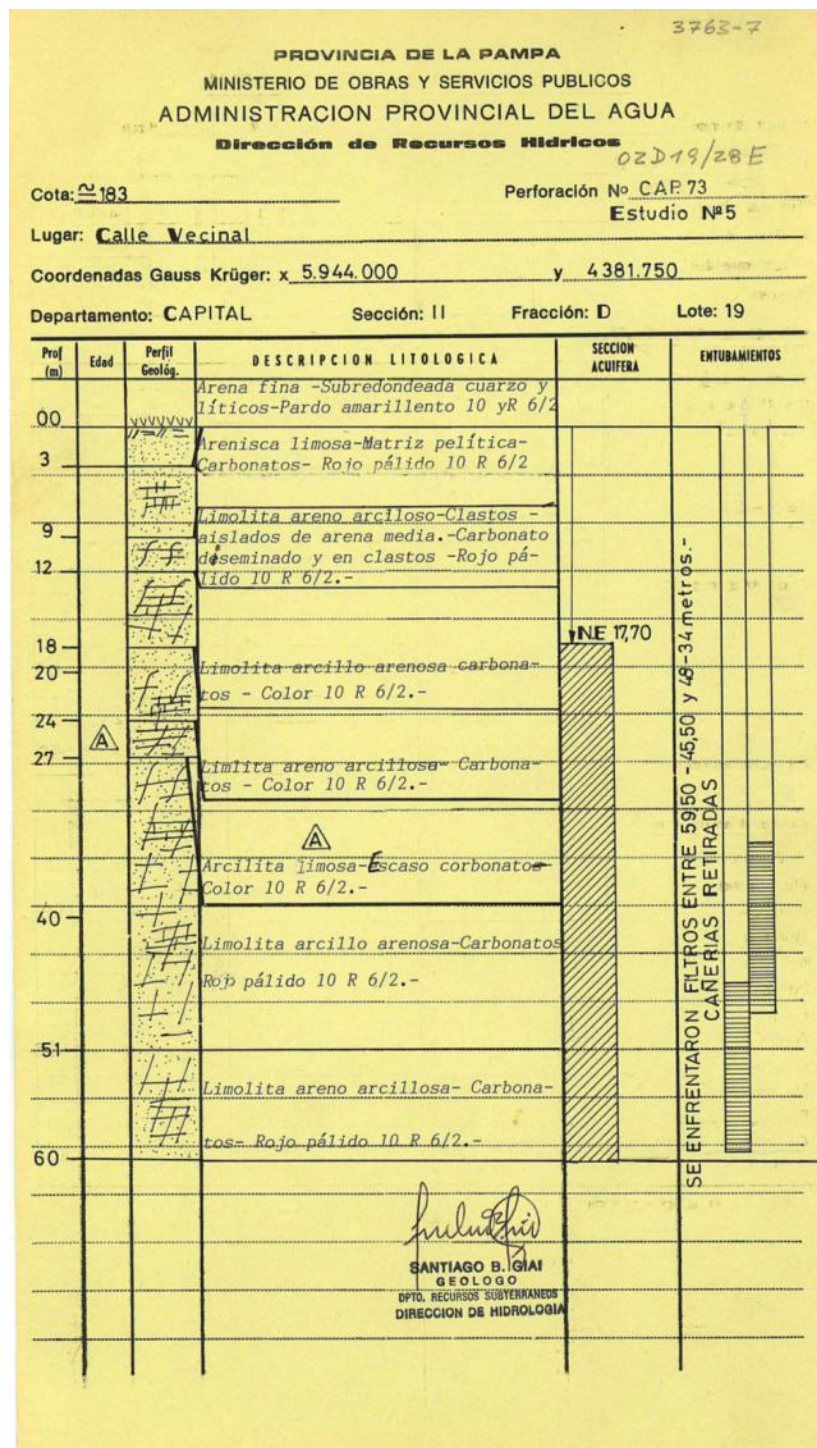 3763-7
PROVINCIA DE LA PAMPA
MINISTERIO DE OBRAS Y SERVICIOS PUBLICOS
ADMINISTRACION PROVINCIAL DEL AGUA
Dirección de Recursos Hídricos
02D19/28E
Cota: ≃183 Perforación Nº CAP. 73
Estudio Nº5
Lugar: Calle Vecinal
Coordenadas Gauss Krüger: x 5.944.000 y 4381.750
Departamento: CAPITAL Sección: II Fracción: D Lote: 19
Prof (m) Edad Perfil Geológ. DESCRIPCION LITOLOGICA SECCION ACUIFERA ENTUBAMIENTOS
Arena fina -Subredondeada cuarzo y
líticos-Pardo amarillento 10 yR 6/2
00
Arenisca limosa-Matriz pelítica-
3 Carbonatos- Rojo pálido 10 R 6/2
Limolita areno arcilloso-Clastos -
9 aislados de arena media.-Carbonato
diseminado y en clastos -Rojo pá-
12 lido 10 R 6/2.-
18 N.E 17,70
20 Limolita arcillo arenosa carbona-
tos - Color 10 R 6/2.-
24
A
27 Limlita areno arcillosa- Carbona-
tos - Color 10 R 6/2.-
A
Arcilita limosa-Escaso corbonatos-
Color 10 R 6/2.-
40
Limolita arcillo arenosa-Carbonatos
Rojo pálido 10 R 6/2.-
51
Limolita areno arcillosa- Carbona-
tos- Rojo pálido 10 R 6/2.-
60
SE ENFRENTARON FILTROS ENTRE 59,50 - 45,50 y 48-34 metros.-
CAÑERIAS RETIRADAS
SANTIAGO B. GIAI
GEOLOGO
DPTO. RECURSOS SUBTERRANEOS
DIRECCION DE HIDROLOGIA